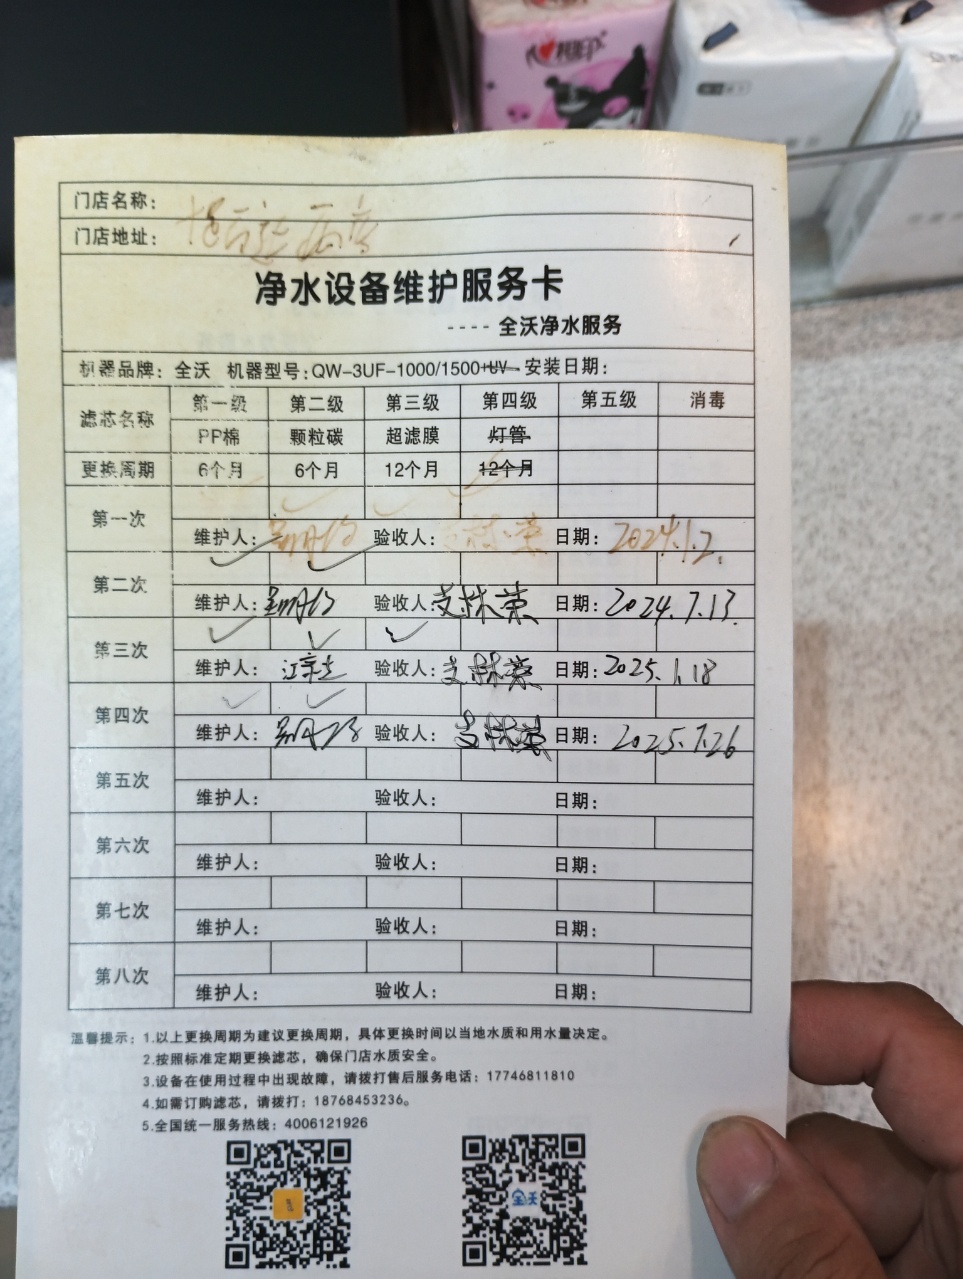 心相印
门店名称：
门店地址：
净水设备维护服务卡
---- 全沃净水服务
机器品牌：全沃 机器型号：QW-3UF-1000/1500+UV 安装日期：
滤芯名称 第一级 第二级 第三级 第四级 第五级 消毒
PP棉 颗粒碳 超滤膜 灯管
更换周期 6个月 6个月 12个月 12个月
第一次 ✓ ✓ ✓
维护人： 验收人： 日期：2024.1.2.
第二次 ✓ ✓
维护人： 验收人：支林荣 日期：2024.7.13.
第三次 ✓ ✓ ✓
维护人： 验收人：支林荣 日期：2025.1.18
第四次 ✓ ✓
维护人： 验收人：支林荣 日期：2025.7.26
第五次
维护人： 验收人： 日期：
第六次
维护人： 验收人： 日期：
第七次
维护人： 验收人： 日期：
第八次
维护人： 验收人： 日期：
温馨提示：1.以上更换周期为建议更换周期，具体更换时间以当地水质和用水量决定。
2.按照标准定期更换滤芯，确保门店水质安全。
3.设备在使用过程中出现故障，请拨打售后服务电话：17746811810
4.如需订购滤芯，请拨打：18768453236。
5.全国统一服务热线：4006121926
全沃